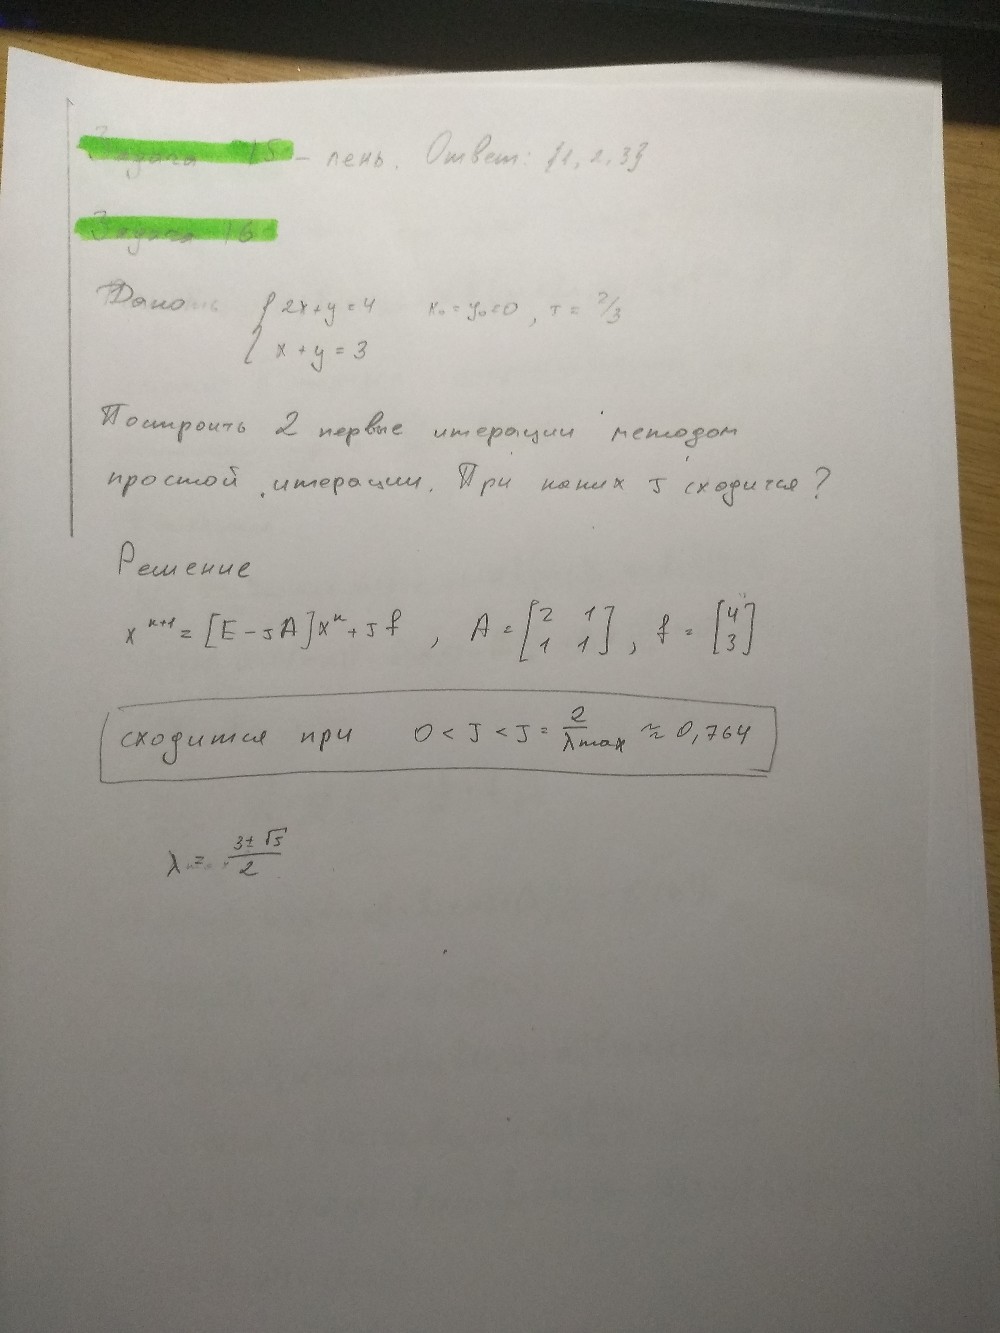 Задача 15 – лень. Ответ: {1, 2, 3}
Задача 16
Дано { 2x+y=4 x₀=y₀=0, τ=2/3
x+y=3
Построить 2 первые итерации методом
простой итерации. При каких τ сходится?
Решение
x^{k+1} = [E-τA]x^k + τf, A = [2 1; 1 1], f = [4; 3]
сходится при 0 < τ < τ = 2/λmax ≈ 0,764
λ = (3±√5)/2